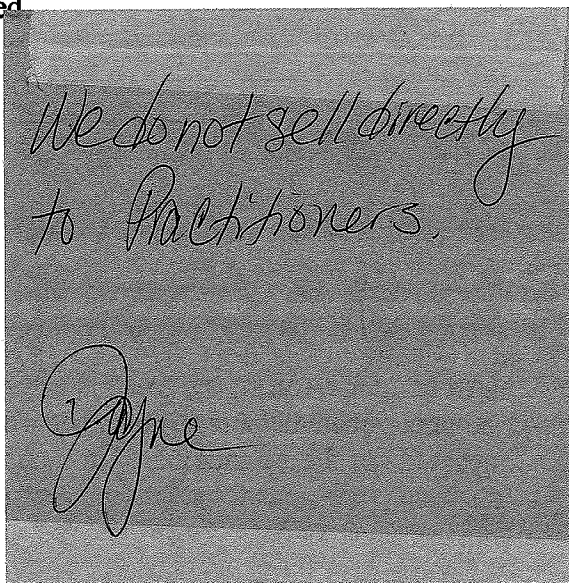 ed
We do not sell directly
to Practitioners.
Jayne